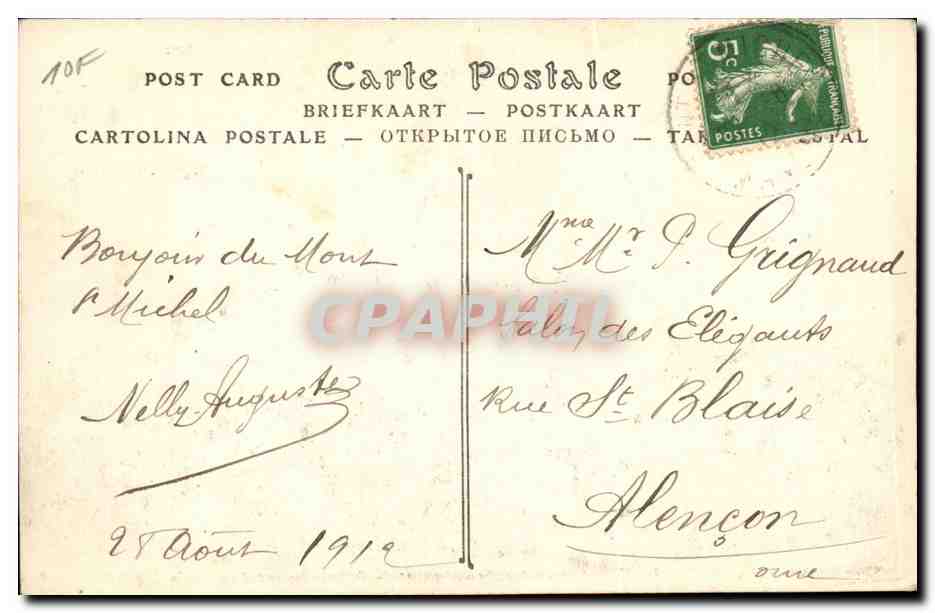 10F
POST CARD Carte Postale PO
BRIEFKAART — POSTKAART
CARTOLINA POSTALE — ОТКРЫТОЕ ПИСЬМО — TAR STAL
5c
REPUBLIQUE FRANÇAISE
POSTES
Bonjour du Mont
St Michel
Nelly Auguste
Août 1912
Mme Mr P. Grignaud
Salon des Elégants
Rue St Blaise
Alençon
Orne
CPAPHIL